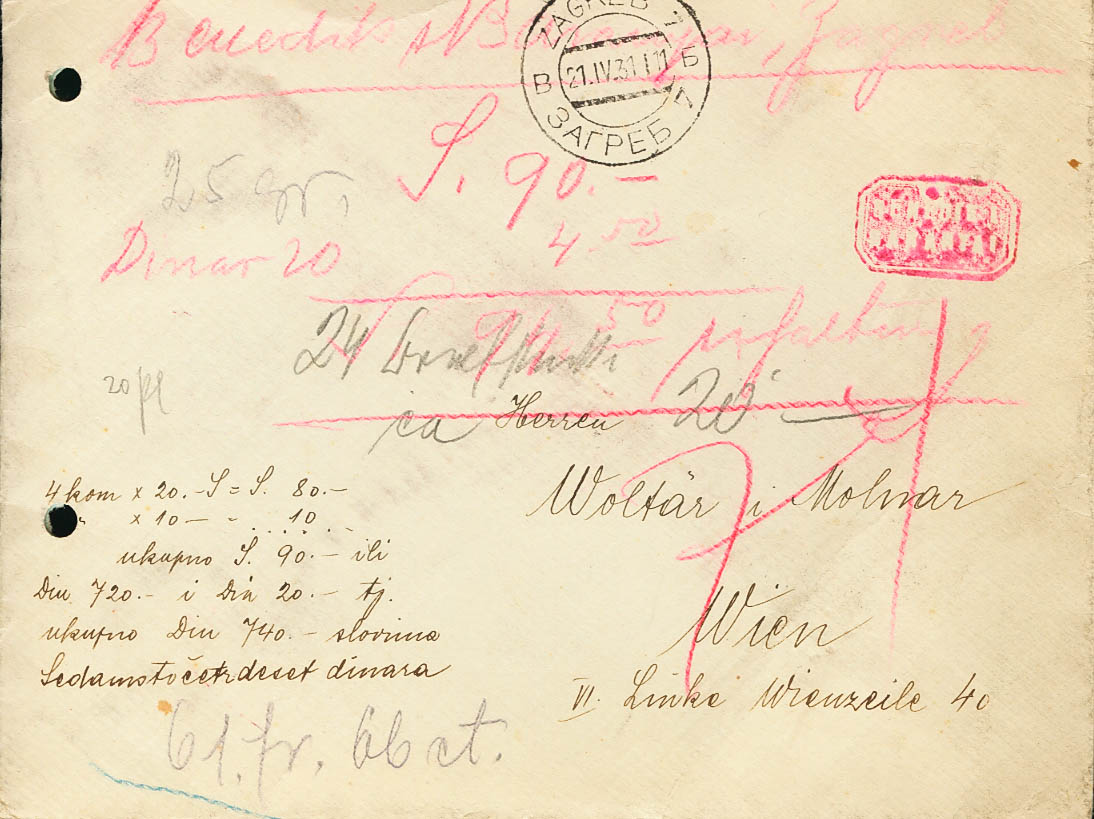 Benedikt Baranyai, Zagreb
ZAGREB 7
B 21.IV.31 11 Б
ЗАГРЕБ 7
S. 90.—
25 gr,
4 50
Dinar 20
50
24
20
ca
Herren
Woltär i Molnar
4 kom x 20.- S = S. 80.—
" x 10 — - . . . 10 . -
ukupno S. 90.— ili
Din 720.- i Din 20.- tj.
ukupno Din 740.- slovima
Sedamstočetrdeset dinara
Wien
VI. Linke Wienzeile 40
61. fr. 66 ct.